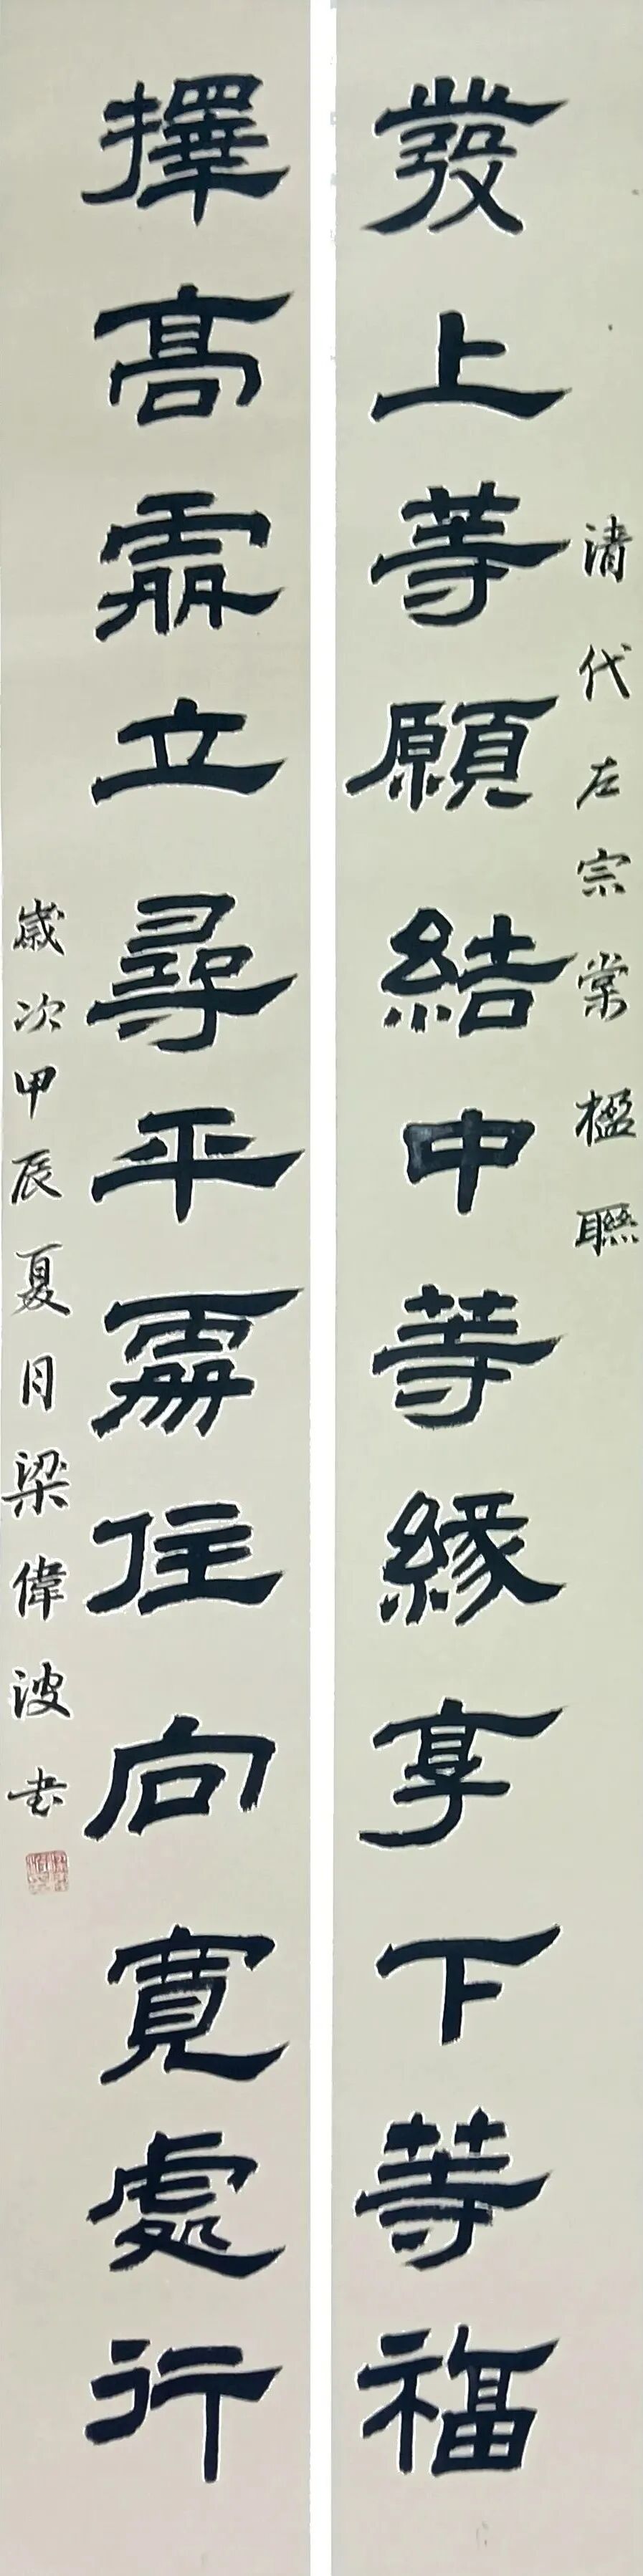 清代左宗棠楹聯
發上等願結中等緣享下等福
擇高處立尋平處住向寬處行
歲次甲辰夏月梁偉波书